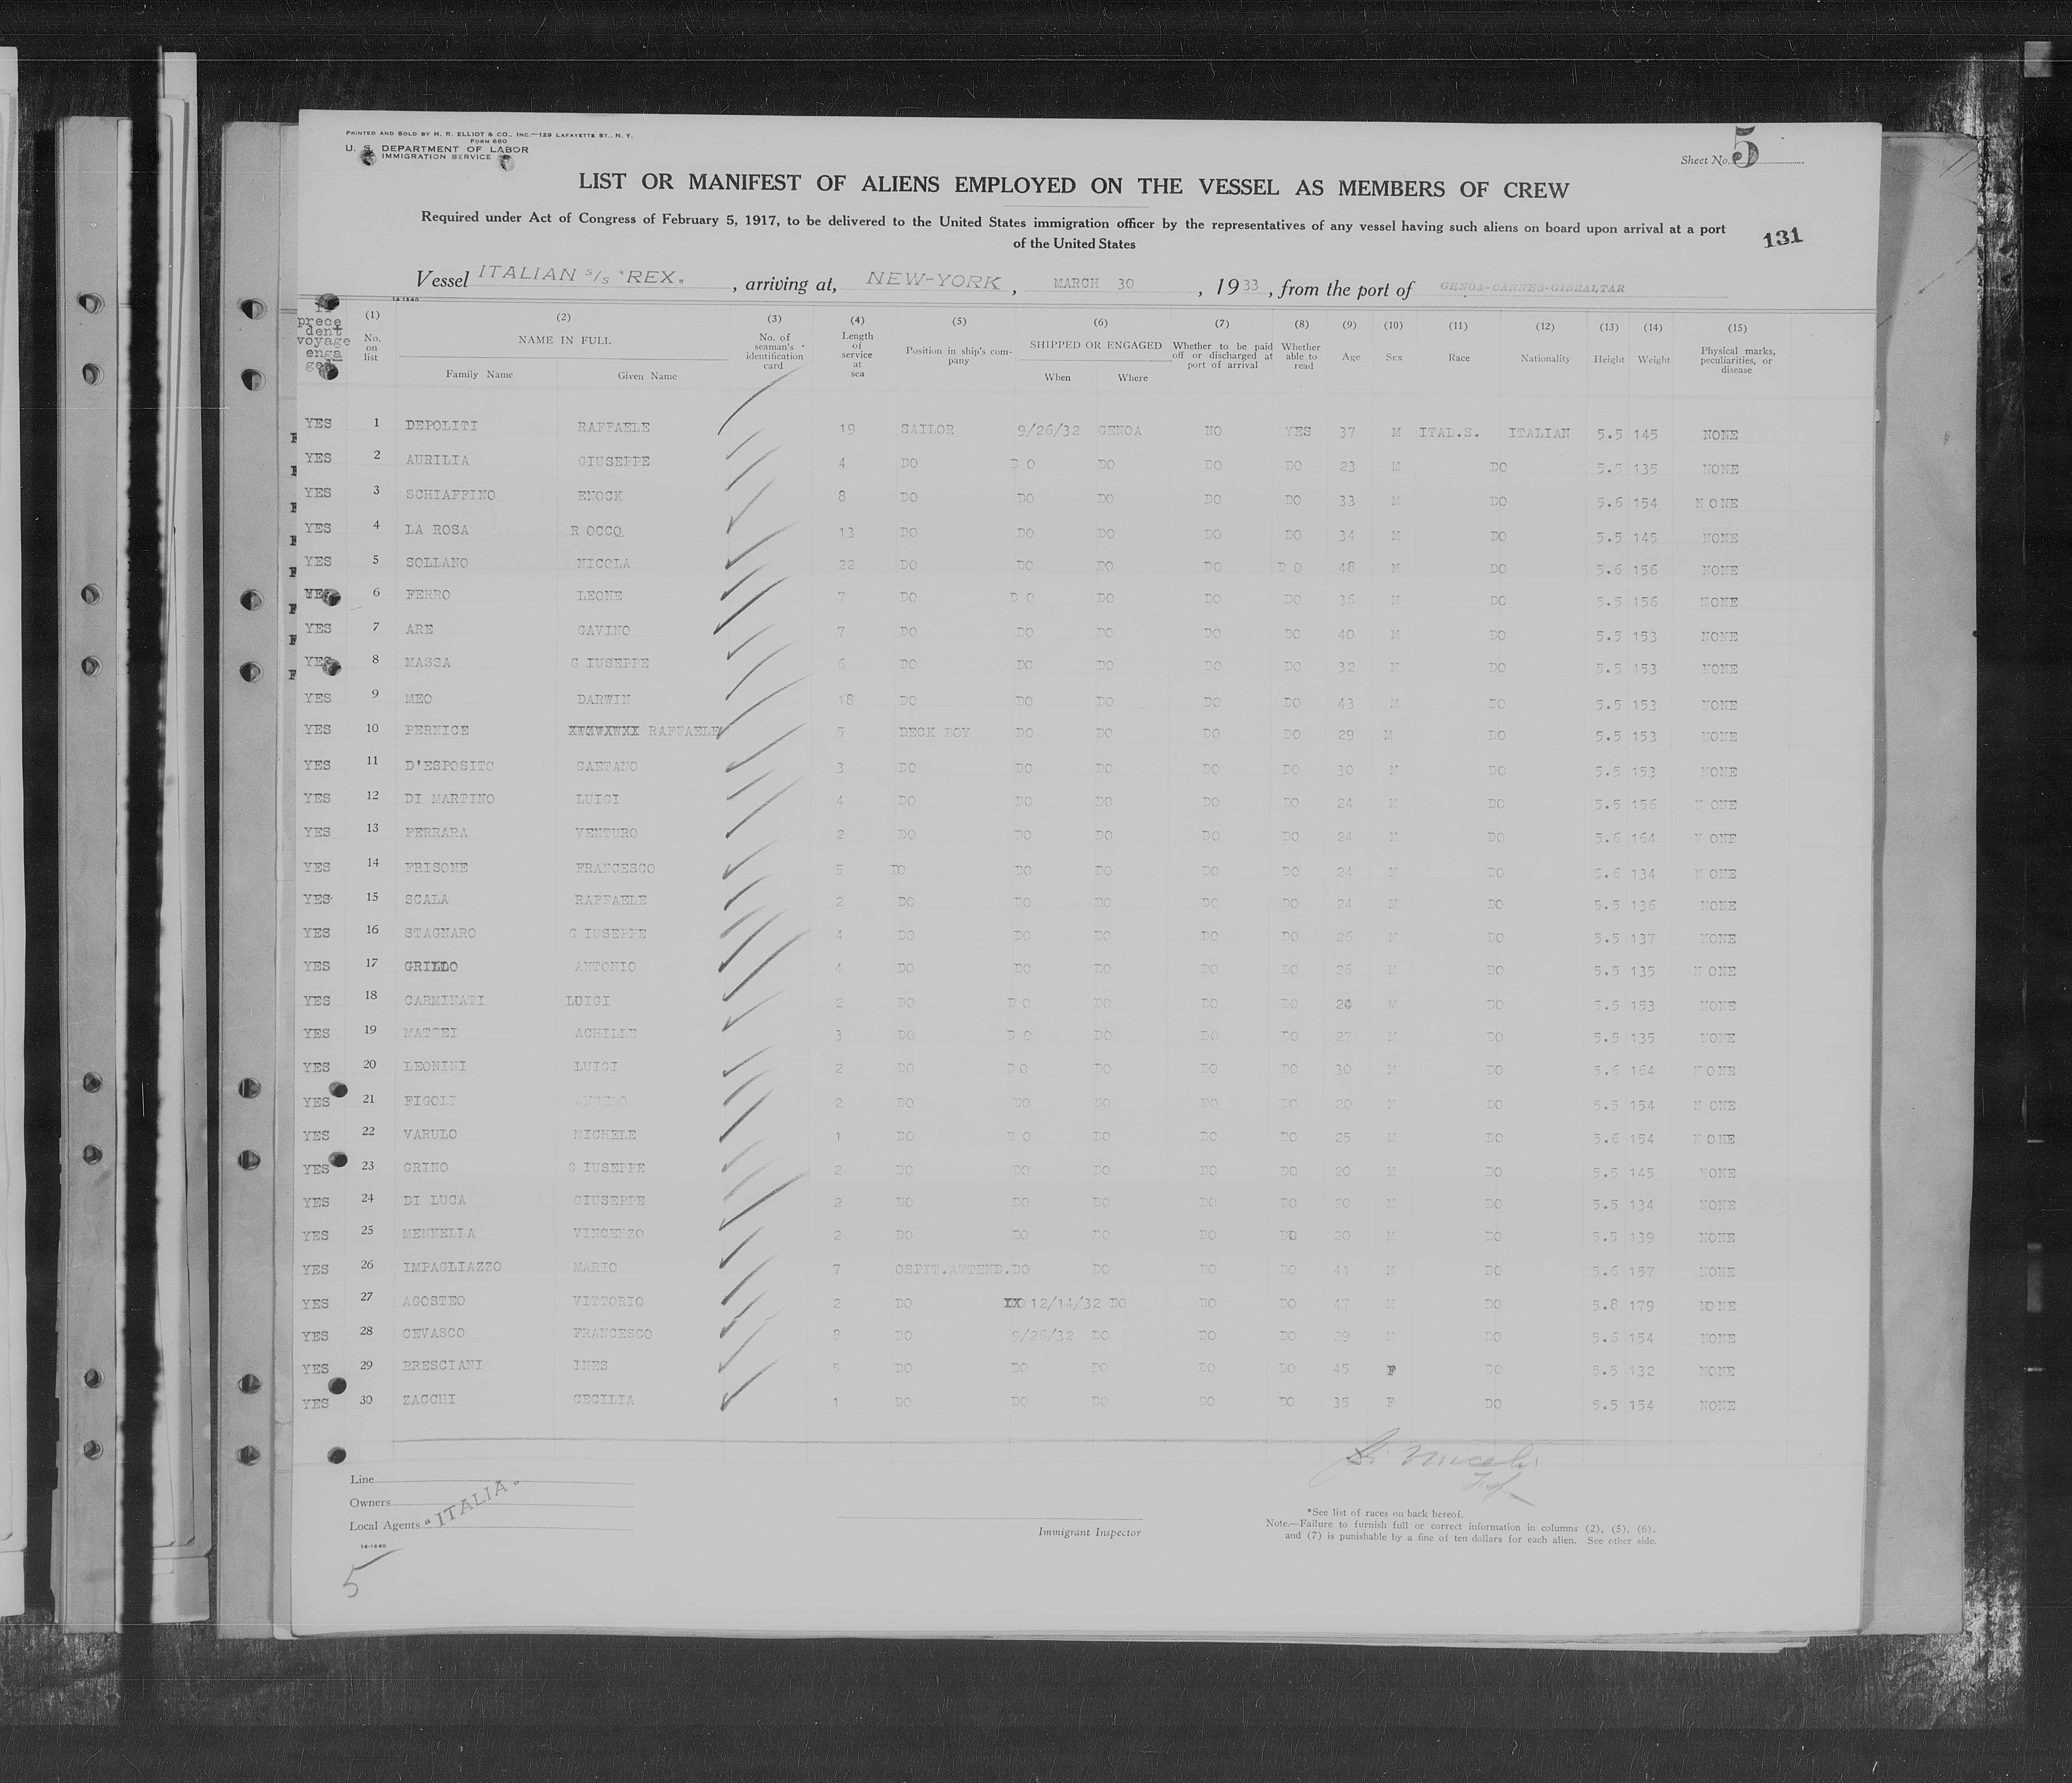 PRINTED AND SOLD BY H. R. ELLIOT & CO., INC.—129 LAFAYETTE ST., N. Y.
FORM 680
U. S. DEPARTMENT OF LABOR
IMMIGRATION SERVICE
Sheet No. 5
LIST OR MANIFEST OF ALIENS EMPLOYED ON THE VESSEL AS MEMBERS OF CREW
Required under Act of Congress of February 5, 1917, to be delivered to the United States immigration officer by the representatives of any vessel having such aliens on board upon arrival at a port
of the United States
131
Vessel ITALIAN S/S "REX", arriving at, NEW-YORK, MARCH 30, 1933, from the port of GENOA-CANNES-GIBRALTAR
14-1240
prece dent voyage enga ged (1) No. on list (2) NAME IN FULL Family Name Given Name (3) No. of seaman's identification card (4) Length of service at sea (5) Position in ship's company (6) SHIPPED OR ENGAGED When Where (7) Whether to be paid off or discharged at port of arrival (8) Whether able to read (9) Age (10) Sex (11) Race (12) Nationality (13) Height (14) Weight (15) Physical marks, peculiarities, or disease
YES 1 DEPOLITI RAFFAELE 19 SAILOR 9/26/32 GENOA NO YES 37 M ITAL.S. ITALIAN 5.5 145 NONE
YES 2 AURILIA GIUSEPPE 4 DO D O DO DO DO 23 M DO 5.5 135 NONE
YES 3 SCHIAFFINO ENOCK 8 DO DO DO DO DO 33 M DO 5.6 154 N ONE
YES 4 LA ROSA R OCCO 13 DO DO DO DO DO 34 M DO 5.5 145 NONE
YES 5 SOLLANO NICOLA 22 DO DO DO DO D O 48 M DO 5.6 156 NONE
YES 6 FERRO LEONE 7 DO D O DO DO DO 36 M DO 5.5 156 NONE
YES 7 ARE GAVINO 7 DO DO DO DO DO 40 M DO 5.5 153 NONE
YES 8 MASSA G IUSEPPE 6 DO DO DO DO DO 32 M DO 5.5 153 NONE
YES 9 MEO DARWIN 18 DO DO DO DO DO 43 M DO 5.5 153 NONE
YES 10 PERNICE RAFFAELE 5 DECK BOY DO DO DO DO 29 M DO 5.5 153 NONE
YES 11 D'ESPOSITO GAETANO 3 DO DO DO DO DO 30 M DO 5.5 153 NONE
YES 12 DI MARTINO LUIGI 4 DO DO DO DO DO 24 M DO 5.5 156 N ONE
YES 13 FERRARA VENTURO 2 DO DO DO DO DO 24 M DO 5.6 164 N ONE
YES 14 FRISONE FRANCESCO 5 DO DO DO DO DO 24 M DO 5.6 134 N ONE
YES 15 SCALA RAFFAELE 2 DO DO DO DO DO 24 M DO 5.5 136 NONE
YES 16 STAGNARO G IUSEPPE 4 DO DO DO DO DO 26 M DO 5.5 137 NONE
YES 17 GRILLO ANTONIO 4 DO DO DO DO DO 26 M DO 5.5 135 N ONE
YES 18 CARMINATI LUIGI 2 DO D O DO DO DO M DO 5.5 153 NONE
YES 19 MATTEI ACHILLE 3 DO D O DO DO DO 27 M DO 5.5 135 NONE
YES 20 LEONINI LUIGI 2 DO D O DO DO DO 30 M DO 5.6 164 N ONE
YES 21 FIGOLI ANGELO 2 DO DO DO DO DO 20 M DO 5.5 154 N ONE
YES 22 VARULO MICHELE 1 DO D O DO DO DO 25 M DO 5.6 154 N ONE
YES 23 GRINO G IUSEPPE 2 DO DO DO DO DO 20 M DO 5.5 145 NONE
YES 24 DI LUCA GIUSEPPE 2 DO DO DO DO DO 20 M DO 5.5 134 NONE
YES 25 MENNELLA VINCENZO 2 DO DO DO DO DO 20 M DO 5.5 139 NONE
YES 26 IMPAGLIAZZO MARIO 7 OSPIT.ATTEND. DO DO DO DO 41 M DO 5.6 157 NONE
YES 27 AGOSTEO VITTORIO 2 DO 12/14/32 DO DO DO 47 M DO 5.8 179 NONE
YES 28 CEVASCO FRANCESCO 8 DO 9/26/32 DO DO DO 29 M DO 5.6 154 NONE
YES 29 BRESCIANI INES 5 DO DO DO DO DO 45 F DO 5.5 132 NONE
YES 30 ZACCHI CECILIA 1 DO DO DO DO DO 35 F DO 5.5 154 NONE
Line
Owners
Local Agents "ITALIA"
14-1240
Immigrant Inspector
*See list of races on back hereof.
Note.—Failure to furnish full or correct information in columns (2), (5), (6),
and (7) is punishable by a fine of ten dollars for each alien. See other side.
5